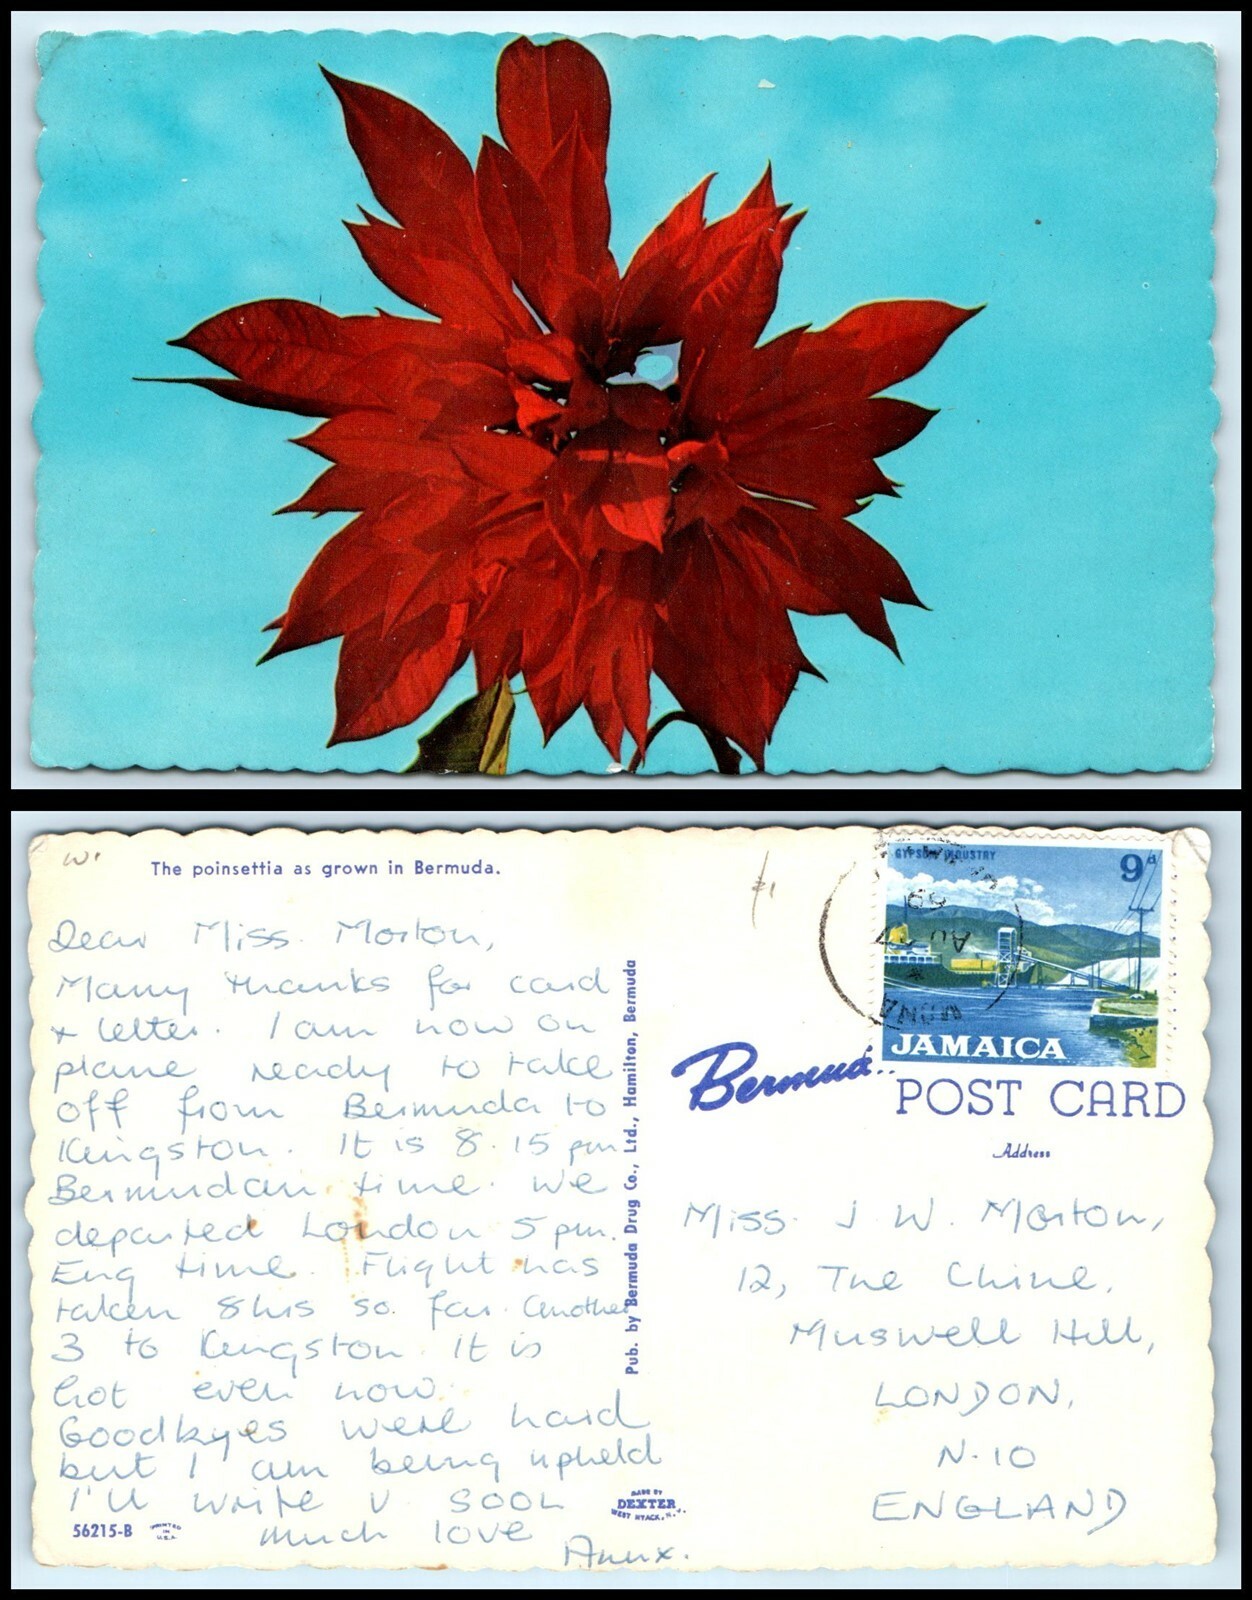 W.
The poinsettia as grown in Bermuda.
Dear Miss. Morton,
Many thanks for card
+ letter. I am now on
plane ready to take
off from Bermuda to
Kingston. It is 8.15 pm
Bermudan time. We
departed London 5 pm.
Eng time. Flight has
taken 8hrs so far. Another
3 to Kingston. It is
hot even now.
Goodbyes were hard
but I am being upheld
I'll write v. soon
much love
Annx.
56215-B
PRINTED
IN
U.S.A.
Pub. by Bermuda Drug Co., Ltd., Hamilton, Bermuda
MADE BY
DEXTER
WEST NYACK, N.Y.
GYPSUM INDUSTRY
9d
JAMAICA
69
AU 7
MONA
Bermuda..
POST CARD
Address
Miss. J. W. Morton,
12, The Chine,
Muswell Hill,
LONDON,
N.10
ENGLAND